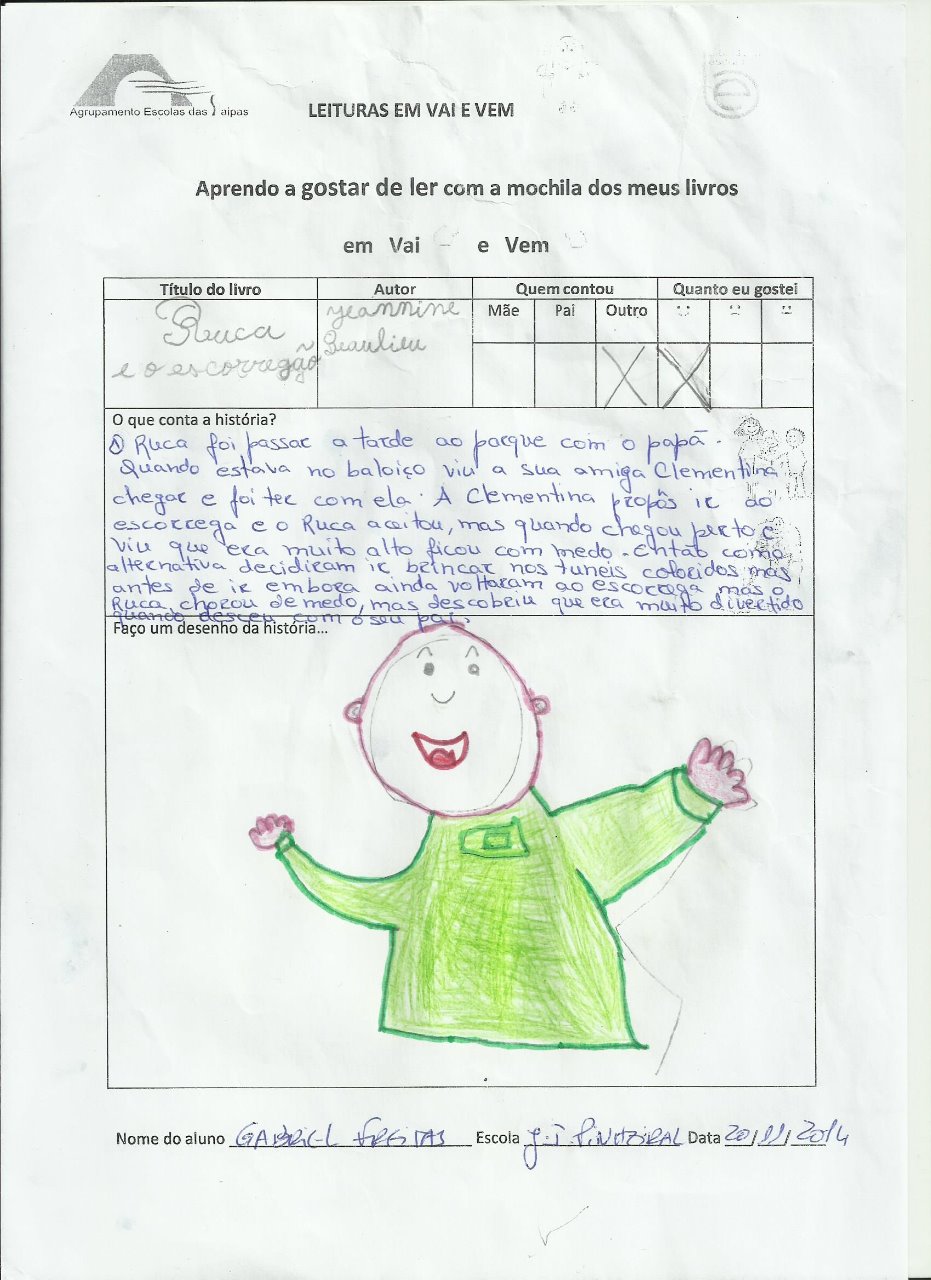 Agrupamento Escolas das Taipas
LEITURAS EM VAI E VEM
Aprendo a gostar de ler com a mochila dos meus livros
em Vai e Vem
Título do livro Autor Quem contou Quanto eu gostei
Mãe Pai Outro
Ruca
e o escorregão
Jeannine
Beaulieu
X X
O que conta a história?
O Ruca foi passar a tarde ao parque com o papá.
Quando estava no baloiço viu a sua amiga Clementina
chegar e foi ter com ela. A Clementina propôs ir ao
escorrega e o Ruca aceitou, mas quando chegou perto e
viu que era muito alto ficou com medo. Então como
alternativa decidiram ir brincar nos tuneis coloridos mas
antes de ir embora ainda voltaram ao escorrega mas o
Ruca, chorou de medo, mas descobriu que era muito divertido
quando desceu com o seu pai.
Faço um desenho da história...
Nome do aluno GABRIEL FREITAS Escola J.I Data 20/11/2014